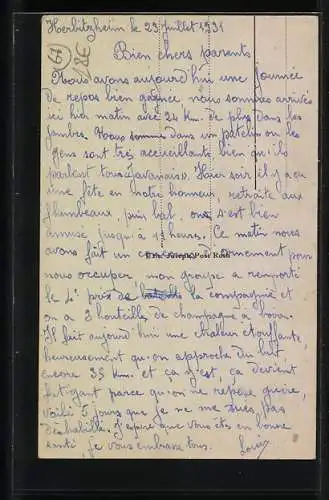 Herbitzheim le 23 Juillet 1931
Bien chers parents
Nous avons aujourd'hui une journée
de repos bien gagnée nous sommes arrivés
ici hier matin avec 24 Km. de plus dans les
jambes. Nous sommes dans un patelin ou les
gens sont très accueillants bien qu'ils
parlent tous "javanais". Hier soir il y a eu
une fête en notre honneur, retraite aux
flambeaux, puis bal, on s'est bien
amusé jusqu'à 11 heures. Ce matin nous
avons fait un concours d'armement pour
nous occuper, mon groupe a remporté
le 4e prix de la compagnie et
on a 2 bouteilles de champagne a boire.
Il fait aujourd'hui une chaleur étouffante,
heureusement qu'on approche du but,
encore 35 Km. et ça y est, ça devient
fatigant parce qu'on ne repose guère,
voilà 5 jours que je ne me suis pas
déshabillé. J'espère que vous êtes en bonne
santé, je vous embrasse tous.
Louis